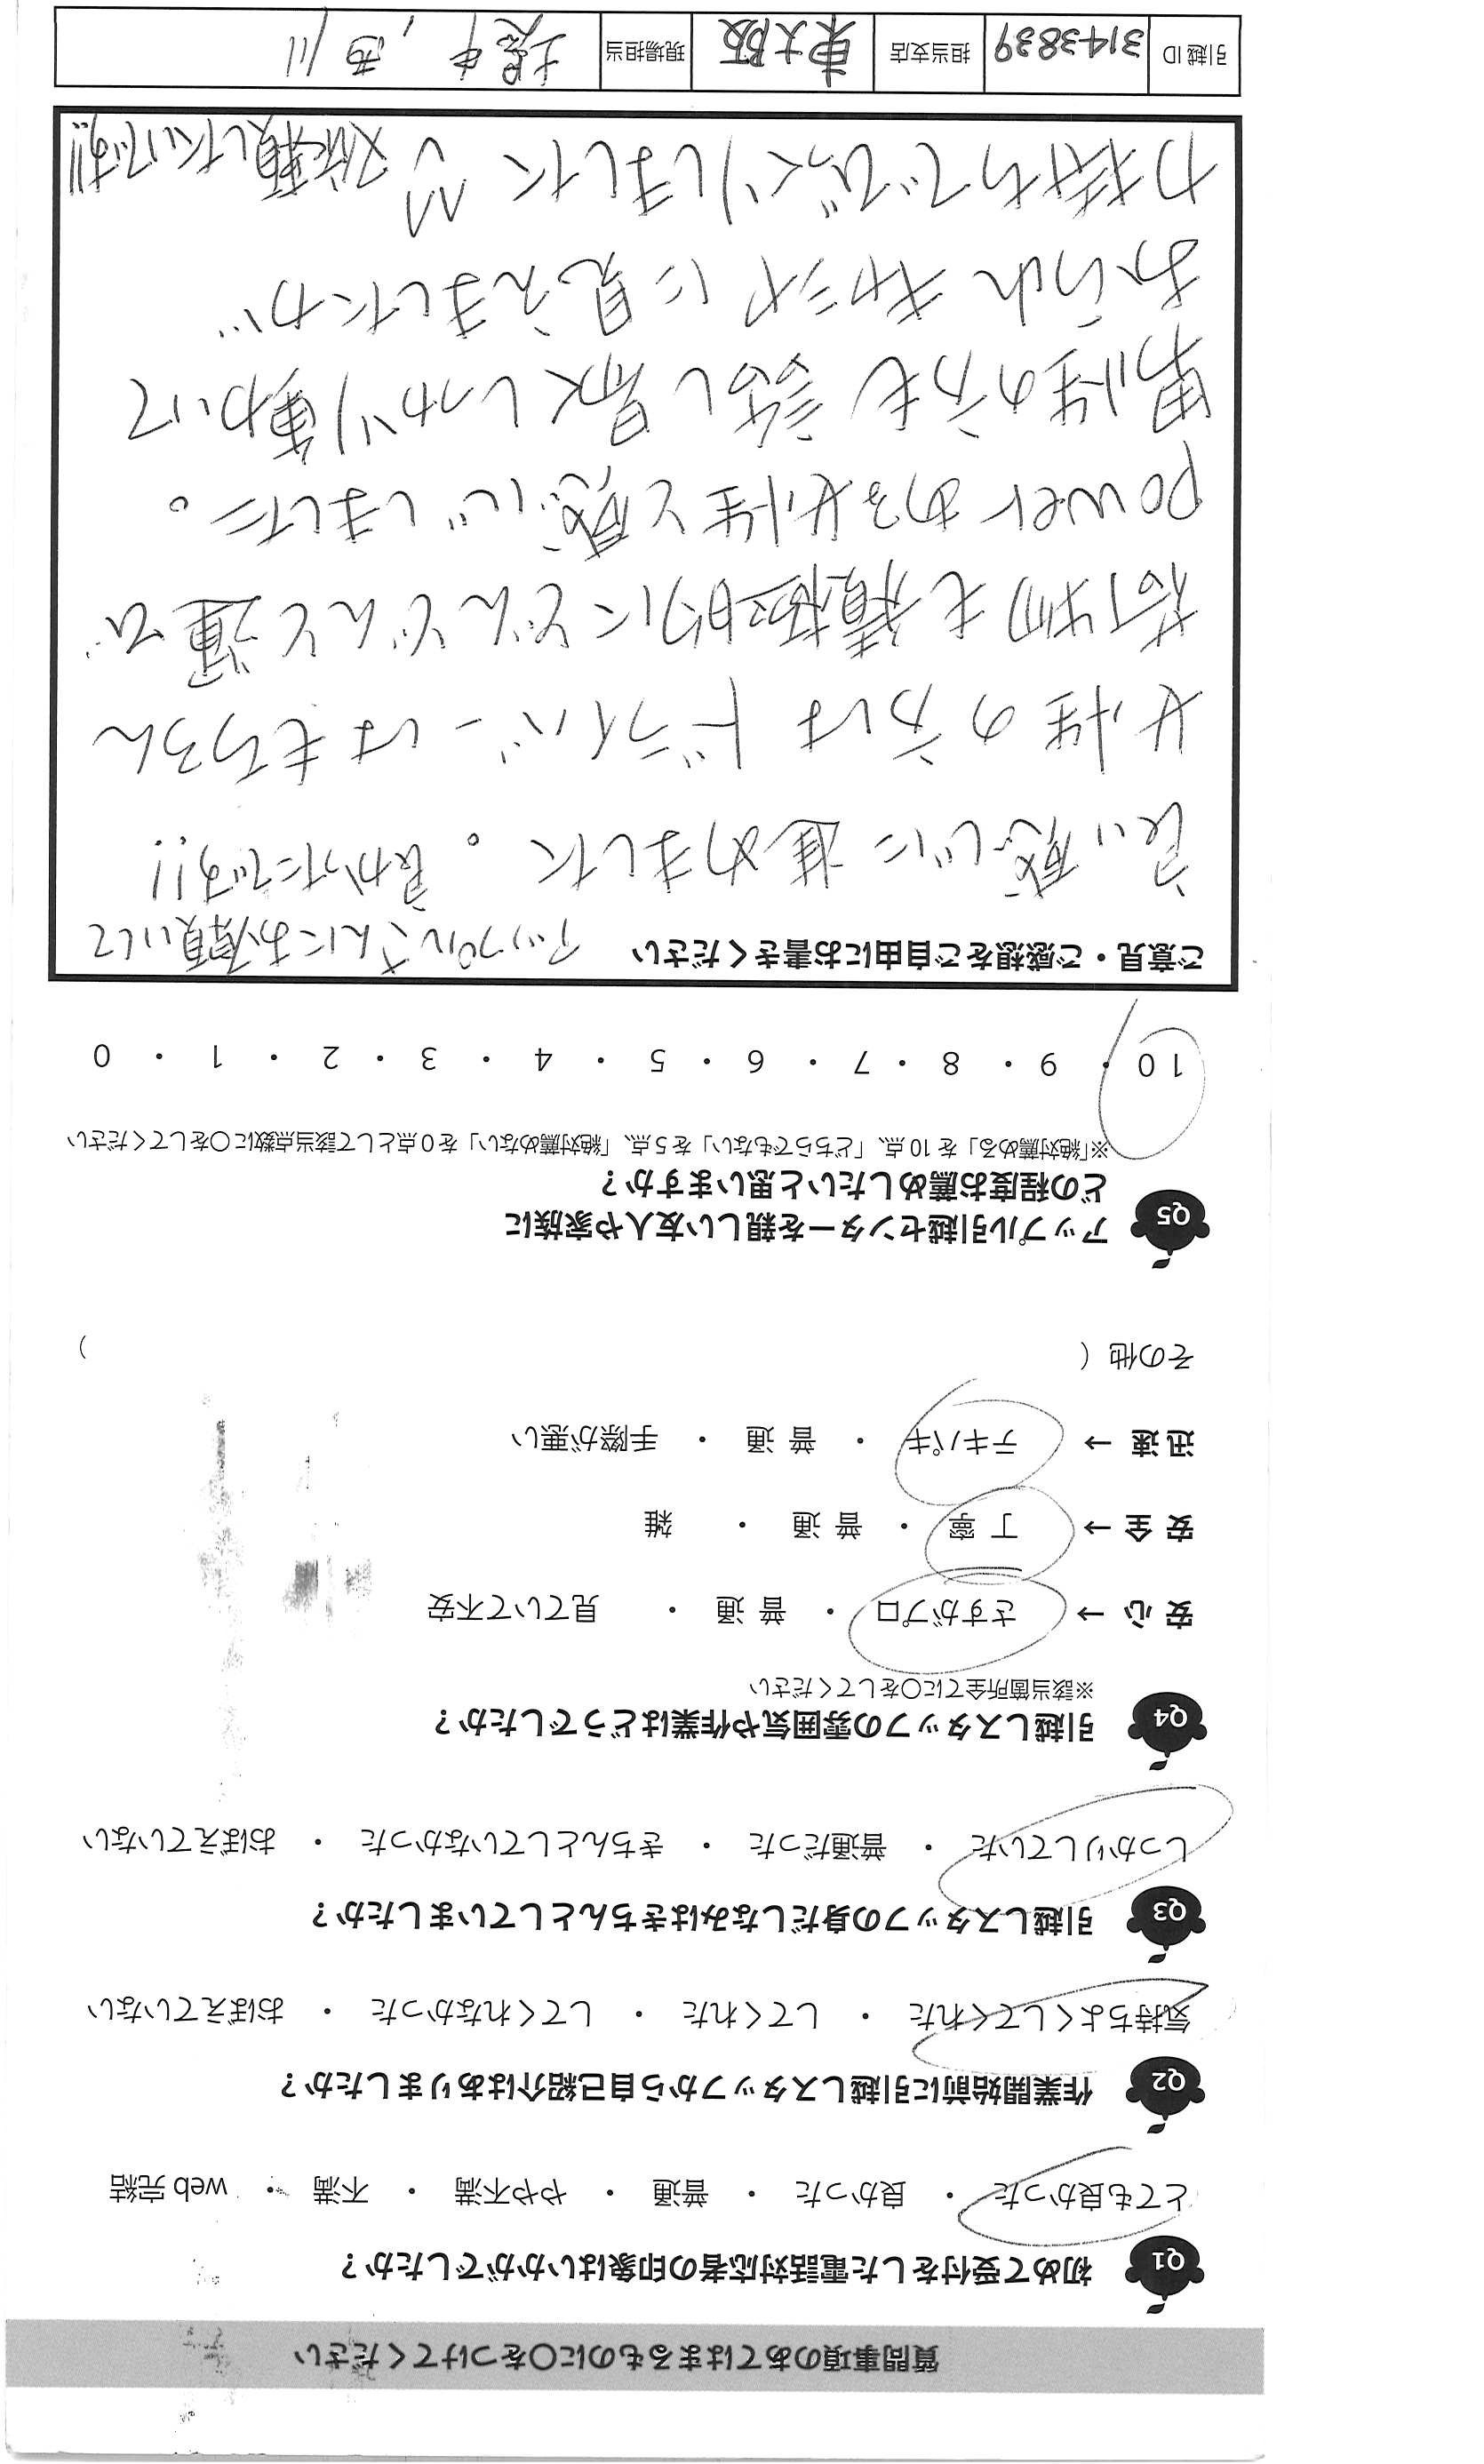 質問事項のあてはまるものに〇をつけてください
Q1 初めて受付をした電話対応者の印象はいかがでしたか？
とても良かった ・ 良かった ・ 普通 ・ やや不満 ・ 不満 ・ web 完結
Q2 作業開始前に引越しスタッフから自己紹介はありましたか？
気持ちよくしてくれた ・ してくれた ・ してくれなかった ・ おぼえていない
Q3 引越しスタッフの身だしなみはきちんとしていましたか？
しっかりしていた ・ 普通だった ・ きちんとしていなかった ・ おぼえていない
Q4 引越しスタッフの雰囲気や作業はどうでしたか？
※該当箇所全てに〇をしてください
安 心 → さすがプロ ・ 普 通 ・ 見ていて不安
安 全 → 丁 寧 ・ 普 通 ・ 雑
迅 速 → テキパキ ・ 普 通 ・ 手際が悪い
その他（ ）
Q5 アップル引越センターを親しい友人や家族に
どの程度お薦めしたいと思いますか？
※「絶対薦める」を 10 点、「どちらでもない」を 5 点、「絶対薦めない」を 0 点として該当点数に〇をしてください
10 ・ 9 ・ 8 ・ 7 ・ 6 ・ 5 ・ 4 ・ 3 ・ 2 ・ 1 ・ 0
ご意見・ご感想をご自由にお書きください アップルさんにお願いして
良い感じに進めました。良かったです!!
女性の方は ドライバーはもちろん
荷物も積極的にどんどんと運び
powerある女性と感じました。
男性の方も話し易くしっかり動わいて
おられ キャシャに見えましたが…
力持ちでびっくりしました 又依頼したいです!!
引越 ID 3143839 担当支店 東大阪 現場担当 畑中, 西川